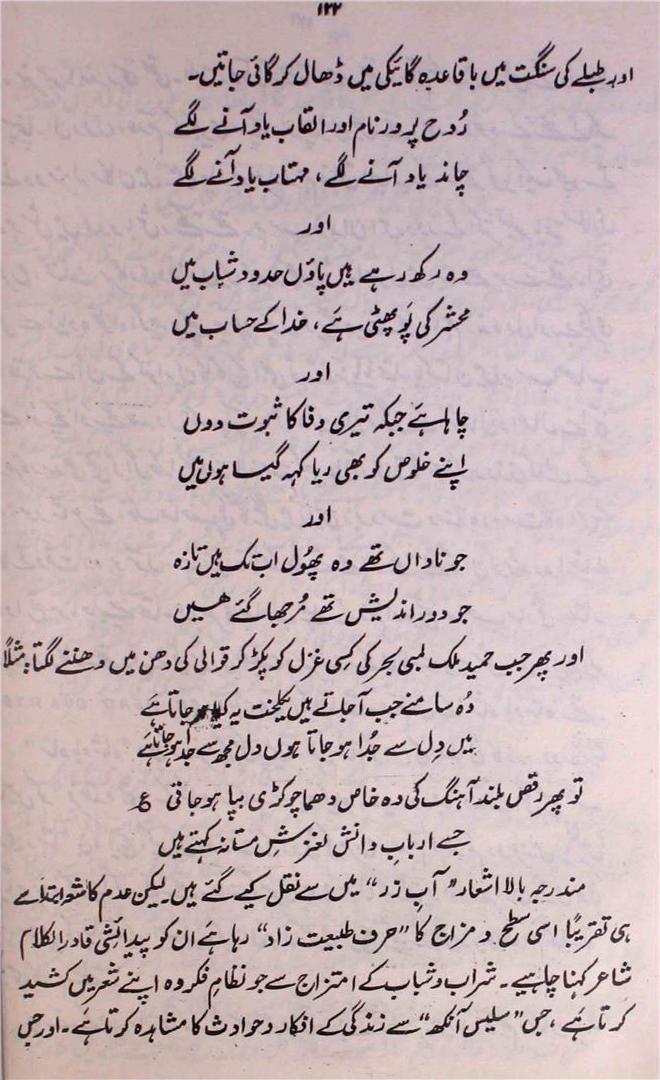 ۱۲۲
اور طبلے کی سنگت میں باقاعدہ گائیکی میں ڈھال کر گائی جاتیں۔
رُوح پرور نام اور القاب یاد آنے لگے
چاند یاد آنے لگے، مہتاب یاد آنے لگے
اور
وہ رکھ رہے ہیں پاؤں حدود شباب میں
محشر کی پَو پھٹی ہے، خدا کے حساب میں
اور
چاہا ہے جبکہ تیری وفا کا ثبوت دوں
اپنے خلوص کو بھی ریا کہہ گیا ہوں میں
اور
جو ناداں تھے وہ پھُول اب تک ہیں تازہ
جو دور اندیش تھے مُرجھا گئے ہیں
اور پھر جب حمید ملک لمبی بحر کی کسی غزل کو پکڑ کر قوالی کی دھن میں دھننے لگتا: مثلاً
وُہ سامنے جب آ جاتے ہیں یکلخت یہ کیا ہو جاتا ہے
میں دِل سے جُدا ہو جاتا ہوں دل مجھ سے جدا ہو جاتا ہے
تو پھر رقص بلند آہنگ کی وہ خاص دھما چوکڑی بپا ہو جاتی ع
جسے اربابِ دانش لغزشِ مستانہ کہتے ہیں
مندرجہ بالا اشعار "آبِ زر" میں سے نقل کیے گئے ہیں۔ لیکن عدم کا شعر ابتدا سے
ہی تقریباً اسی سطح و مزاج کا "حرف طبیعت زاد" رہا ہے ان کو پیدائشی قادر الکلام
شاعر کہنا چاہیے۔ شراب و شباب کے امتزاج سے جو نظامِ فکر وہ اپنے شعر میں کشید
کرتا ہے، جس "سلیس آنکھ" سے زندگی کے افکار و حوادث کا مشاہدہ کرتا ہے۔ اور جس